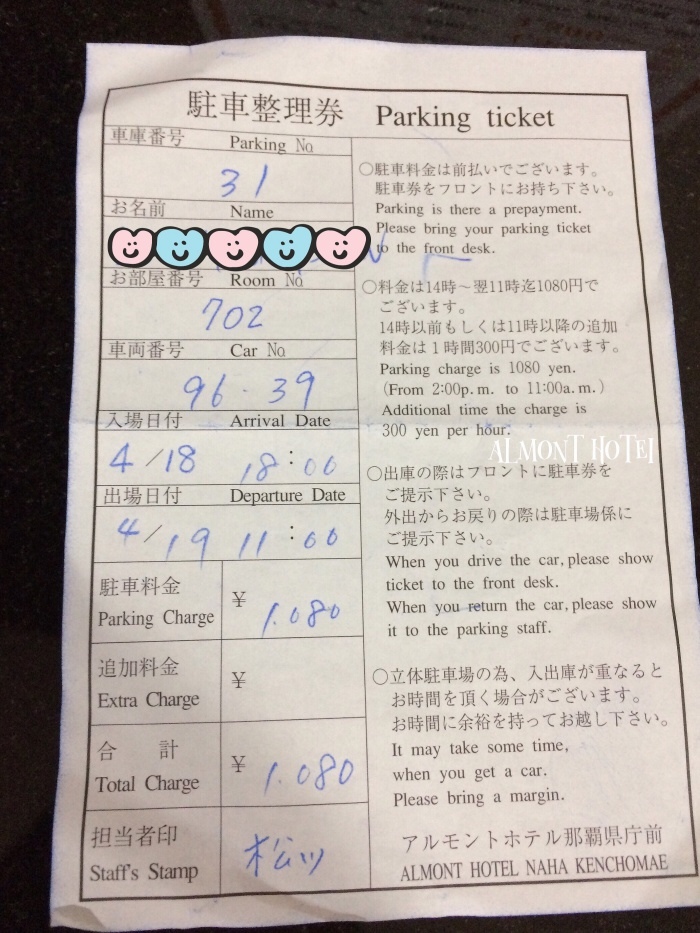 駐車整理券 Parking ticket
車庫番号 Parking No.
31
お名前 Name
お部屋番号 Room No.
702
車両番号 Car No.
96-39
入場日付 Arrival Date
4/18 18:00
出場日付 Departure Date
4/19 11:00
駐車料金
Parking Charge
¥ 1.080
追加料金
Extra Charge
¥
合 計
Total Charge
¥ 1.080
担当者印
Staff's Stamp
○駐車料金は前払いでございます。
駐車券をフロントにお持ち下さい。
Parking is there a prepayment.
Please bring your parking ticket
to the front desk.
○料金は14時~翌11時迄1080円で
ございます。
14時以前もしくは11時以降の追加
料金は1時間300円でございます。
Parking charge is 1080 yen.
(From 2:00p.m. to 11:00a.m.)
Additional time the charge is
300 yen per hour.
ALMONT HOTEl
○出庫の際はフロントに駐車券を
ご提示下さい。
外出からお戻りの際は駐車場係に
ご提示下さい。
When you drive the car,please show
ticket to the front desk.
When you return the car,please show
it to the parking staff.
○立体駐車場の為、入出庫が重なると
お時間を頂く場合がございます。
お時間に余裕を持ってお越し下さい。
It may take some time,
when you get a car.
Please bring a margin.
アルモントホテル那覇県庁前
ALMONT HOTEL NAHA KENCHOMAE